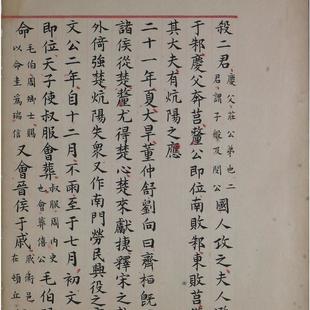 殺二君慶父莊公弟也二君謂子般及閔公國人攻之夫人
于邾慶父奔莒釐公即位南敗邾東敗莒
其大夫有炕陽之應
二十一年夏大旱董仲舒劉向曰齊桓既
諸侯從楚釐尤得楚心楚來獻捷釋宋之
外倚強楚炕陽失衆又作南門勞民興役
文公二年自十二月不雨至于七月初文
即位天子使叔服會葬叔服周內史也會葬僖公毛伯
命毛伯周卿士賜以命圭爲瑞信又會晉侯于戚戚衛邑在頓丘